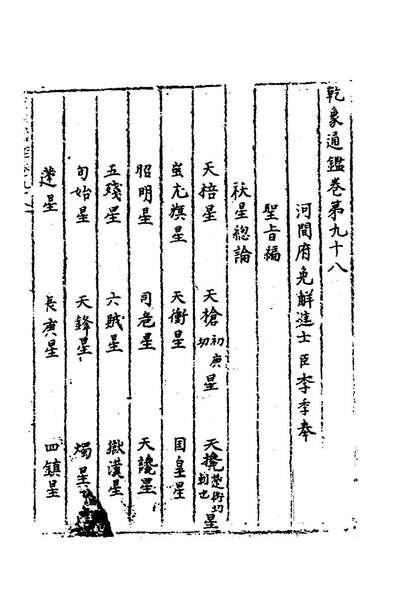 乾象通鑑卷第九十八
河間府免解進士臣李季奉
聖旨編
祅星總論
天棓星 天槍初庚切星 天攙楚銜切星
蚩尤旗星 天衝星 国皇星
昭明星 司危星 天讒星
五殘星 六賊星 獄漢星
旬始星 天鋒星 燭星
蓬星 長庚星 四鎮星